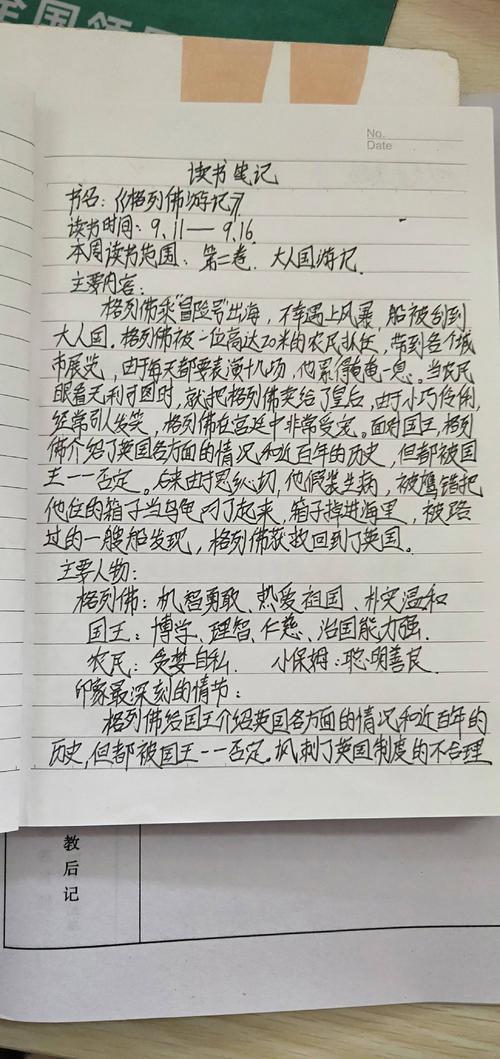 全国领
No.
Date
读书笔记
书名：《格列佛游记》
读书时间：9.11—9.16
本周读书范围：第二卷.大人国游记.
主要内容：
格列佛乘"冒险号"出海，不幸遇上风暴，船被刮到
大人国。格列佛被一位高达20米的农民抓住，带到各个城
市展览，由于每天都要表演十几场，他累得奄奄一息。当农民
眼看无利可图时，就把格列佛卖给了皇后，由于小巧伶俐，
经常引人发笑，格列佛在宫廷中非常受宠。面对国王，格列
佛介绍了英国各方面的情况和近百年的历史，但都被国
王一一否定。后来由于思乡心切，他假装生病，被鹰错把
他住的箱子当乌龟叼了起来，箱子掉进海里，被路
过的一艘船发现，格列佛获救回到了英国。
主要人物：
格列佛：机智勇敢、热爱祖国、朴实温和
国王：博学、理智、仁慈、治国能力强.
农民：贪婪自私. 小保姆：聪明善良.
印象最深刻的情节：
格列佛给国王介绍英国各方面的情况和近百年的
历史，但都被国王一一否定。讽刺了英国制度的不合理
教后记